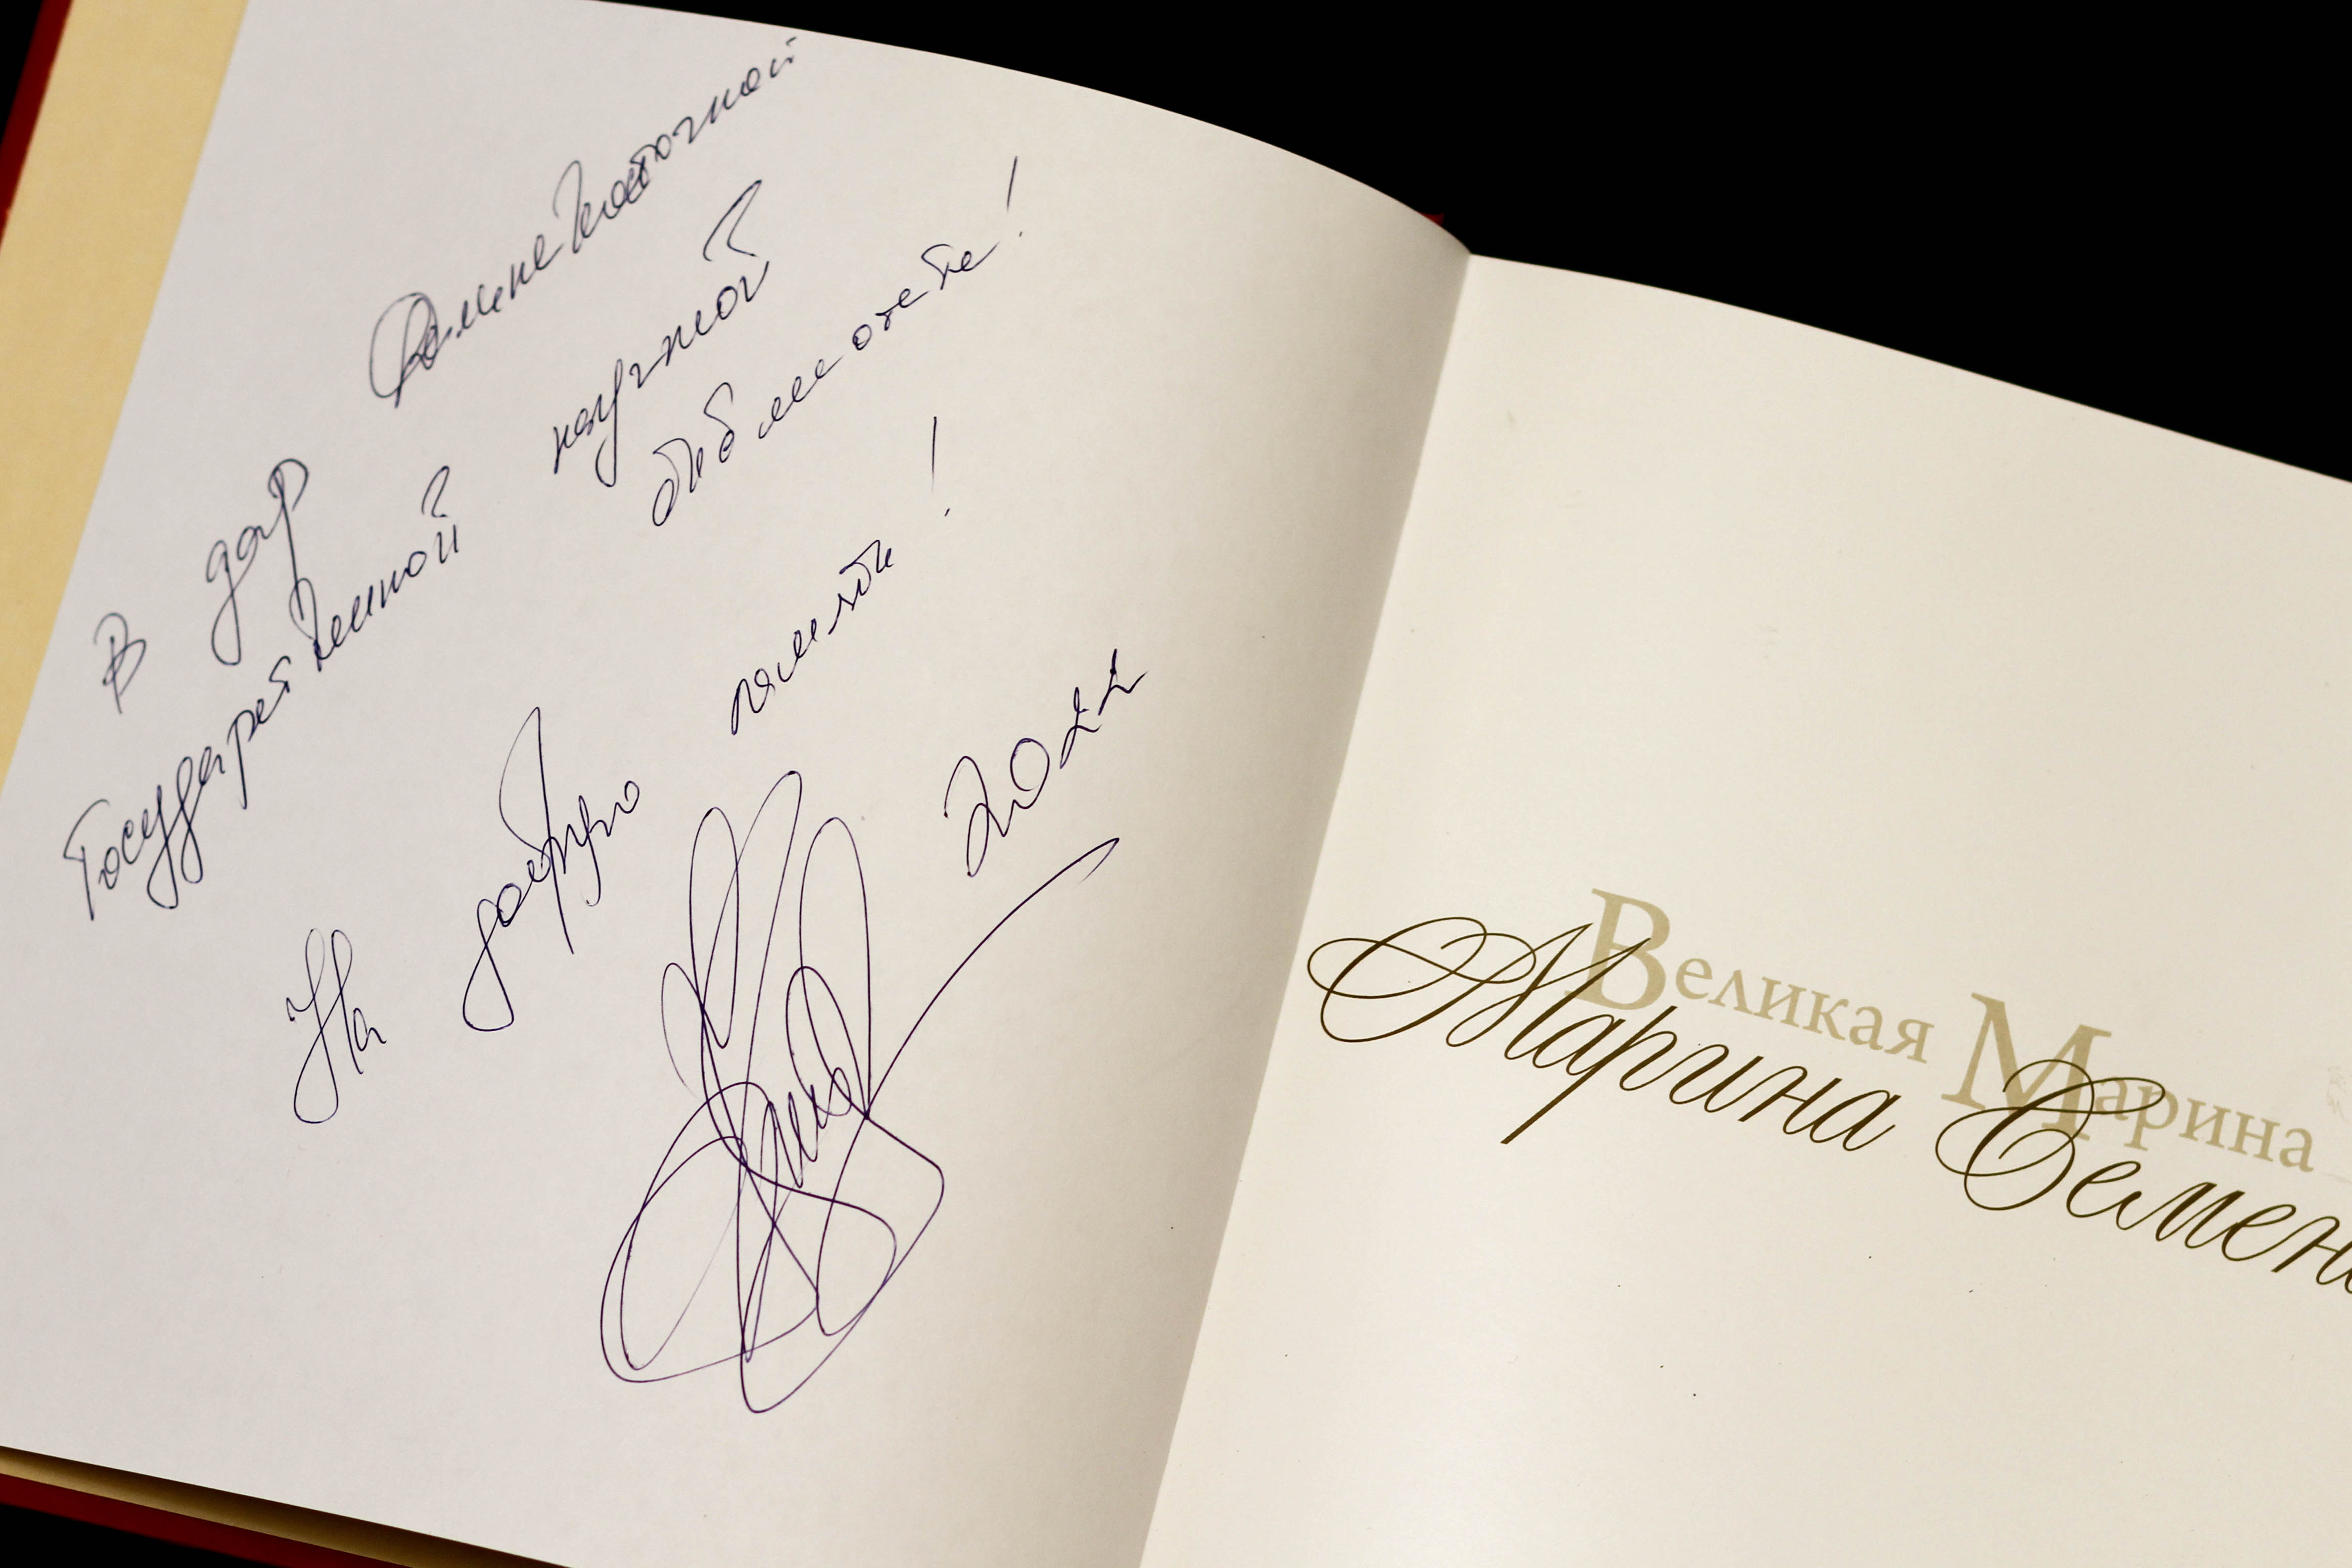 В дар Дальневосточной
Государственной научной
библиотеке!
На добрую память!
2022
Великая Марина
Марина Семен